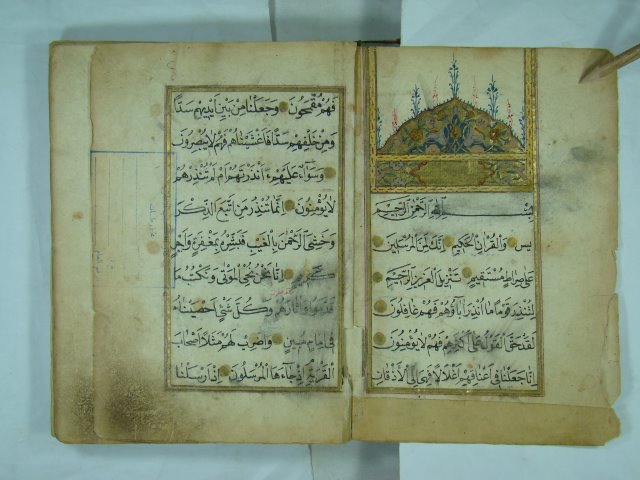 بسم الله الرحمن الرحيم
يس والقرآن الحكيم انك لمن المرسلين
على صراط مستقيم تنزيل العزيز الرحيم
لتنذر قوما ما انذر آباؤهم فهم غافلون
لقد حق القول على اكثرهم فهم لا يؤمنون
انا جعلنا في اعناقهم اغلالا فهي الى الاذقان
فهم مقمحون وجعلنا من بين ايديهم سدا
ومن خلفهم سدا فاغشيناهم فهم لا يبصرون
وسواء عليهم ءانذرتهم ام لم تنذرهم
لا يؤمنون انما تنذر من اتبع الذكر
وخشي الرحمن بالغيب فبشره بمغفرة واجر
كريم انا نحن نحي الموتى ونكتب ما
قدموا وآثارهم وكل شئ احصيناه
في امام مبين واضرب لهم مثلا اصحاب
القرية اذ جاءها المرسلون اذ ارسلنا